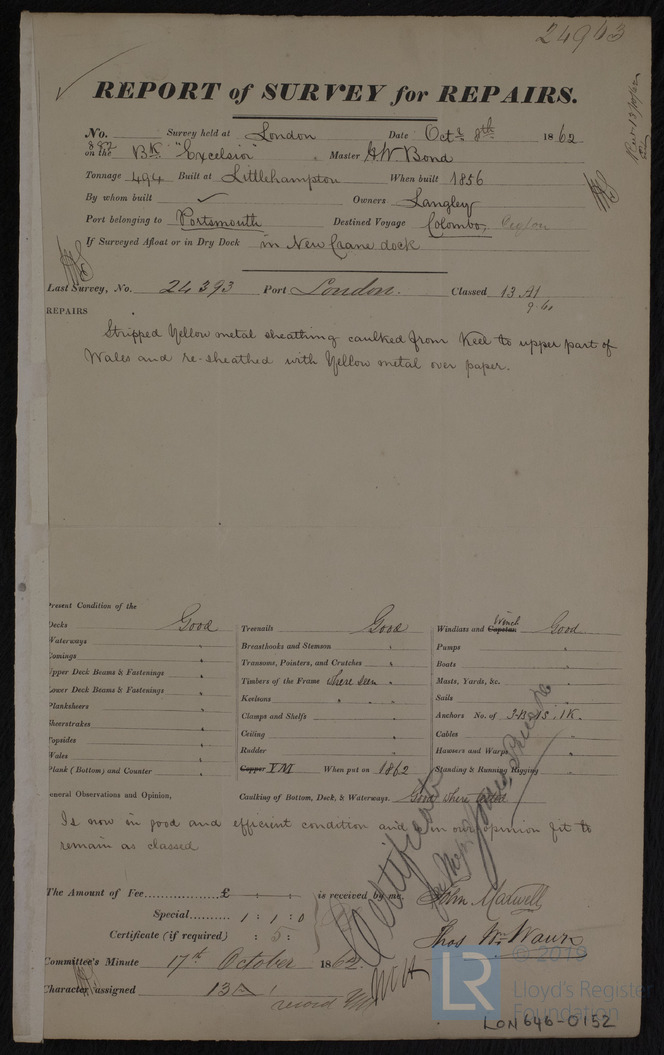 24963
REPORT of SURVEY for REPAIRS.
No. 882 Survey held at London Date Octr 8th 1862
on the Bk "Excelsior" Master Bond
Tonnage 494 Built at Littlehampton When built 1856
By whom built Owners Langley
Port belonging to Portsmouth Destined Voyage Colombo, Ceylon
If Surveyed Afloat or in Dry Dock in New Crane dock
Last Survey, No. 24393 Port London. Classed 13 A1
REPAIRS
Stripped Yellow metal sheathing caulked from Keel to upper part of
Wales and re-sheathed with Yellow metal over paper.
Present Condition of the
Decks Good Treenails Good Windlass and Capstan Winch Good
Waterways " Breasthooks and Stemson " Pumps "
Comings " Transoms, Pointers, and Crutches " Boats "
Upper Deck Beams & Fastenings " Timbers of the Frame where seen Masts, Yards, &c. "
Lower Deck Beams & Fastenings " Keelsons " Sails "
Planksheers " Clamps and Shelfs " Anchors No. of 3B, 1S, 1K.
Sheerstrakes " Ceiling " Cables "
Topsides " Rudder " Hawsers and Warps "
Wales " Copper YM When put on 1862 Standing & Running Rigging "
Plank (Bottom) and Counter "
General Observations and Opinion, Caulking of Bottom, Deck, & Waterways. Good where tested
Is now in good and efficient condition and in our opinion fit to
remain as classed
The Amount of Fee £ : : is received by me, John Maxwell
Special 1 : 1 : 0
Certificate (if required) : 5 :
Thos Wm
Committee's Minute 17th October 1862
Character assigned 13 A 1
record YM
Certificate
© 2019
LR Lloyd's Register
Foundation
LON646-0152